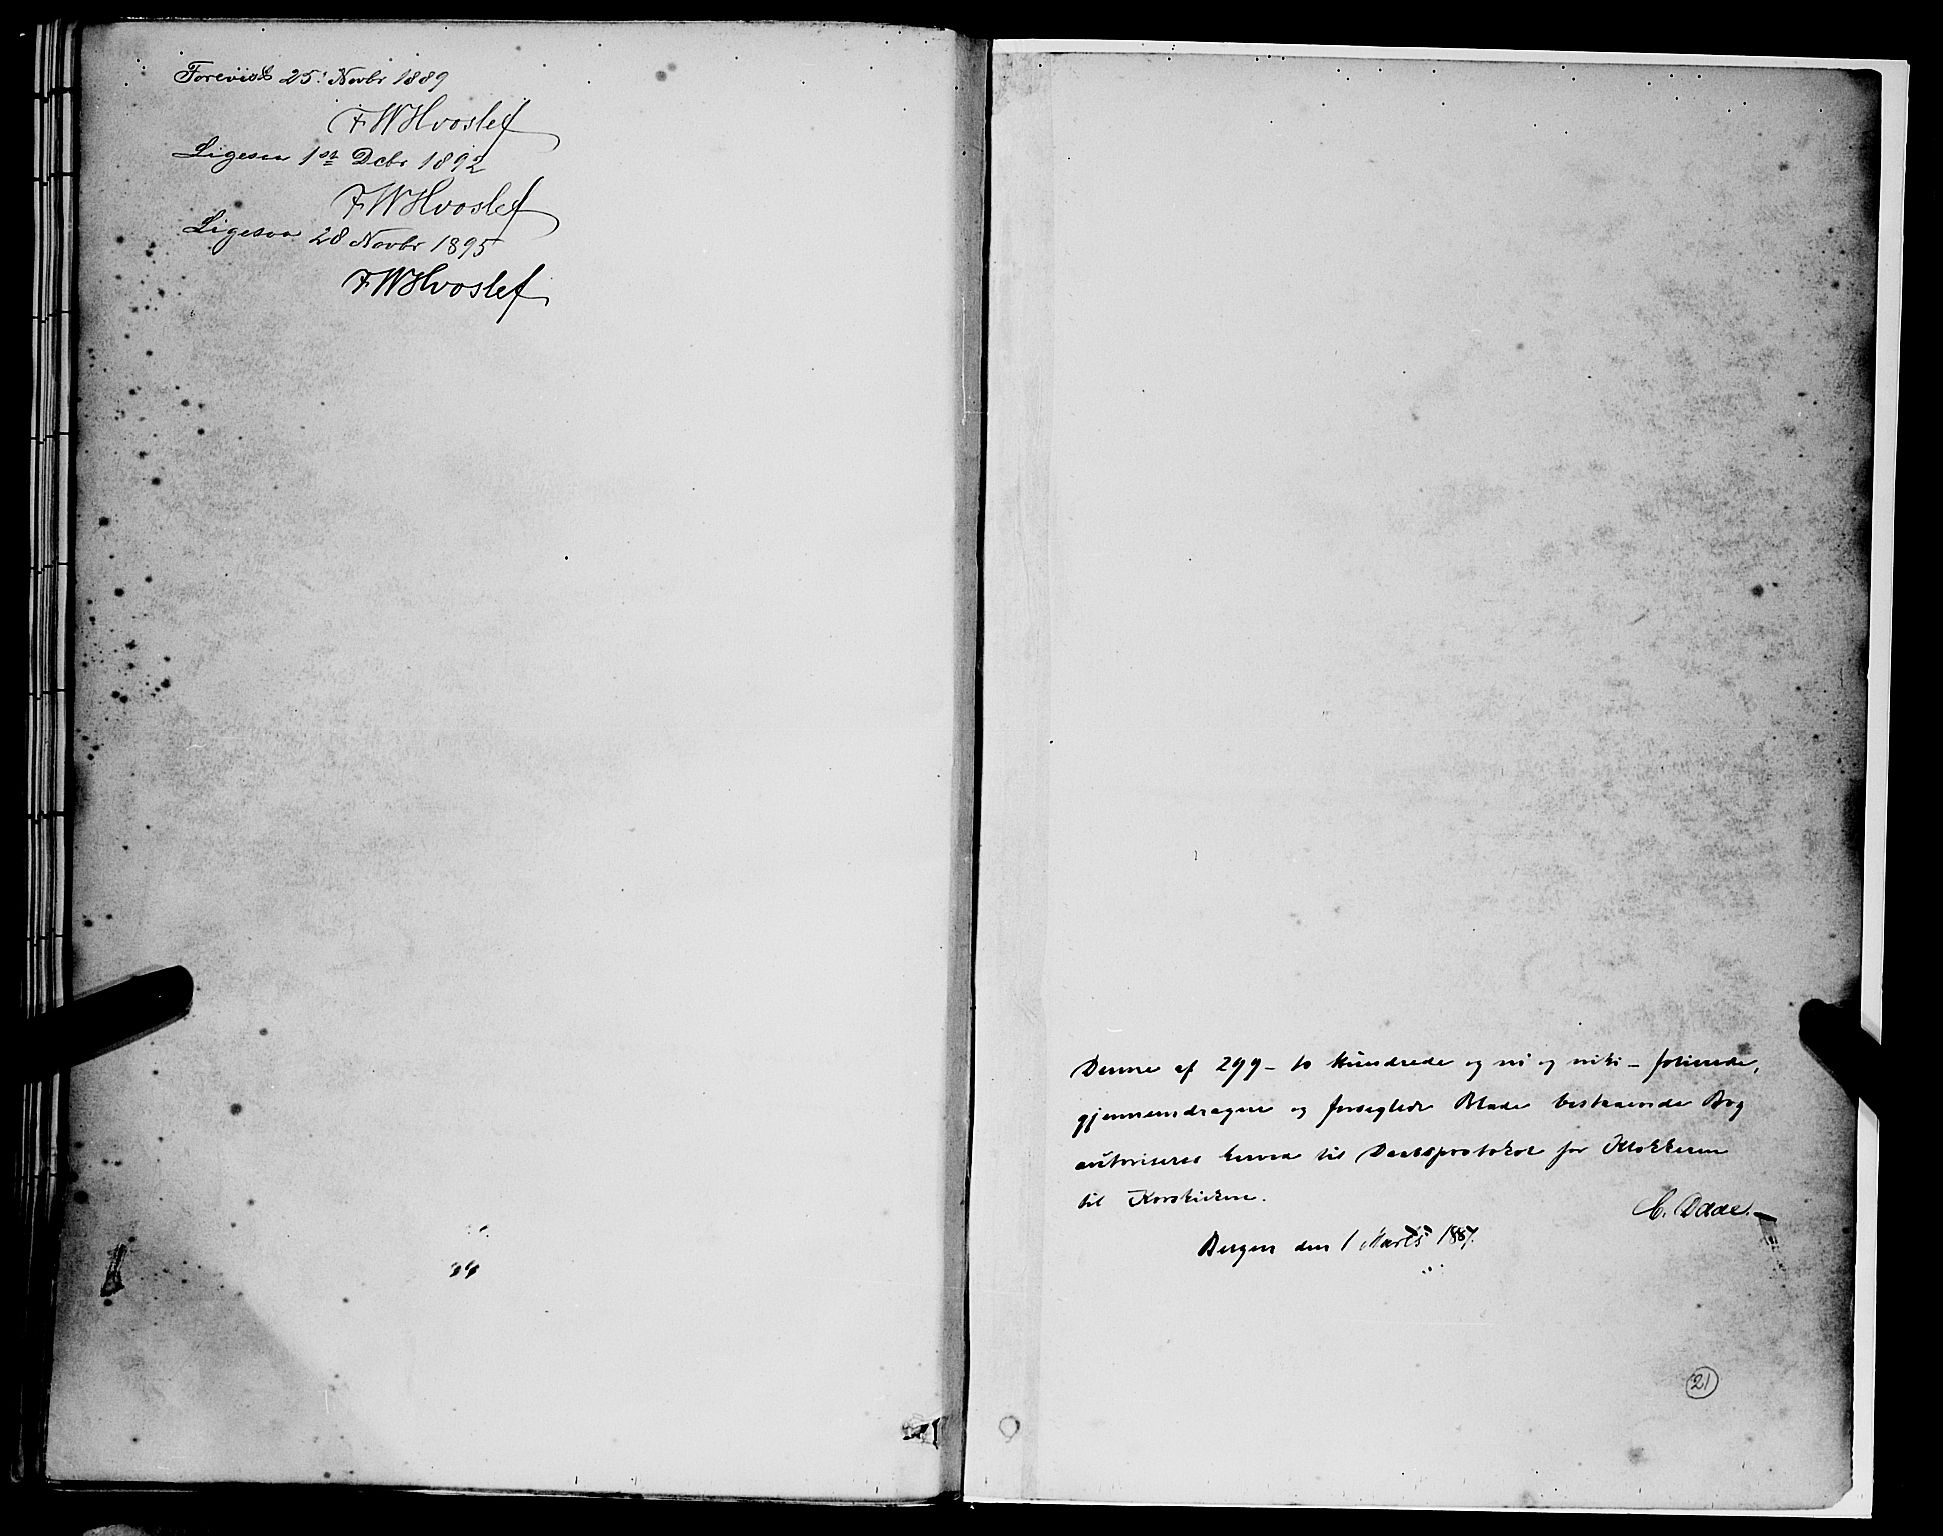 Forevist 25: Novbr 1889
FWHvoslef
Ligesaa 1ste Dcbr 1892
FWHvoslef
Ligesaa 28 Novbr 1895
FWHvoslef
Denne af 299 - to hundrede og ni og niti - folierede,
gjennemdragne og forseglede Blade bestaaende Bog
autoriseres herved til Daabsprotokol for Klokkeren
til Korskirken.
C. Daae.
Bergen den 1 Marts 1887.
21